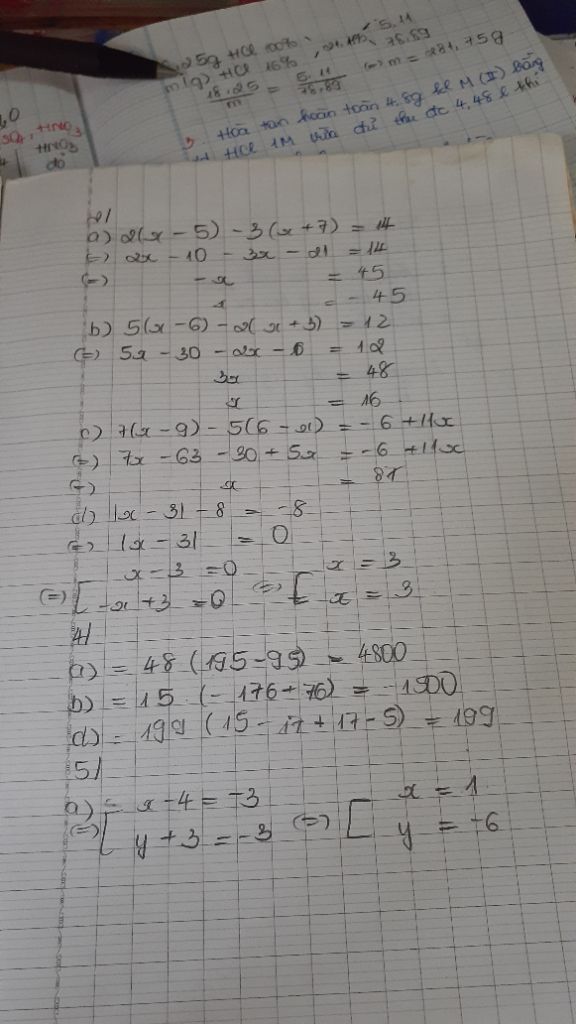 ,25g HCl 100%
5,11
m(g) HCl 16%
78,89
18,25/m = 5,11/78,89 (=) m = 281,75g
Hoà tan hoàn toàn 4,8g kl M (II) bằng
HCl 1M vừa đủ thu đc 4,48 l khí
HNO3
HNO3
đỏ
2/
a) 2(x - 5) - 3(x + 7) = 14
(=) 2x - 10 - 3x - 21 = 14
(=) -x = 45
x = - 45
b) 5(x - 6) - 2(x + 3) = 12
(=) 5x - 30 - 2x - 6 = 12
3x = 48
x = 16
c) 7(x - 9) - 5(6 - x) = - 6 + 11x
(=) 7x - 63 - 30 + 5x = - 6 + 11x
(=) x = 87
d) |x - 3| - 8 = -8
(=) |x - 3| = 0
x - 3 = 0 x = 3
(=) [ (=) [
-x + 3 = 0 x = 3
4/
a) = 48 (195 - 95) = 4800
b) = 15 (- 176 + 76) = - 1500
d) = 199 (15 - 17 + 17 - 5) = 199
5/
a) = x - 4 = -3 x = 1
(=) [ (=) [
y + 3 = -3 y = -6